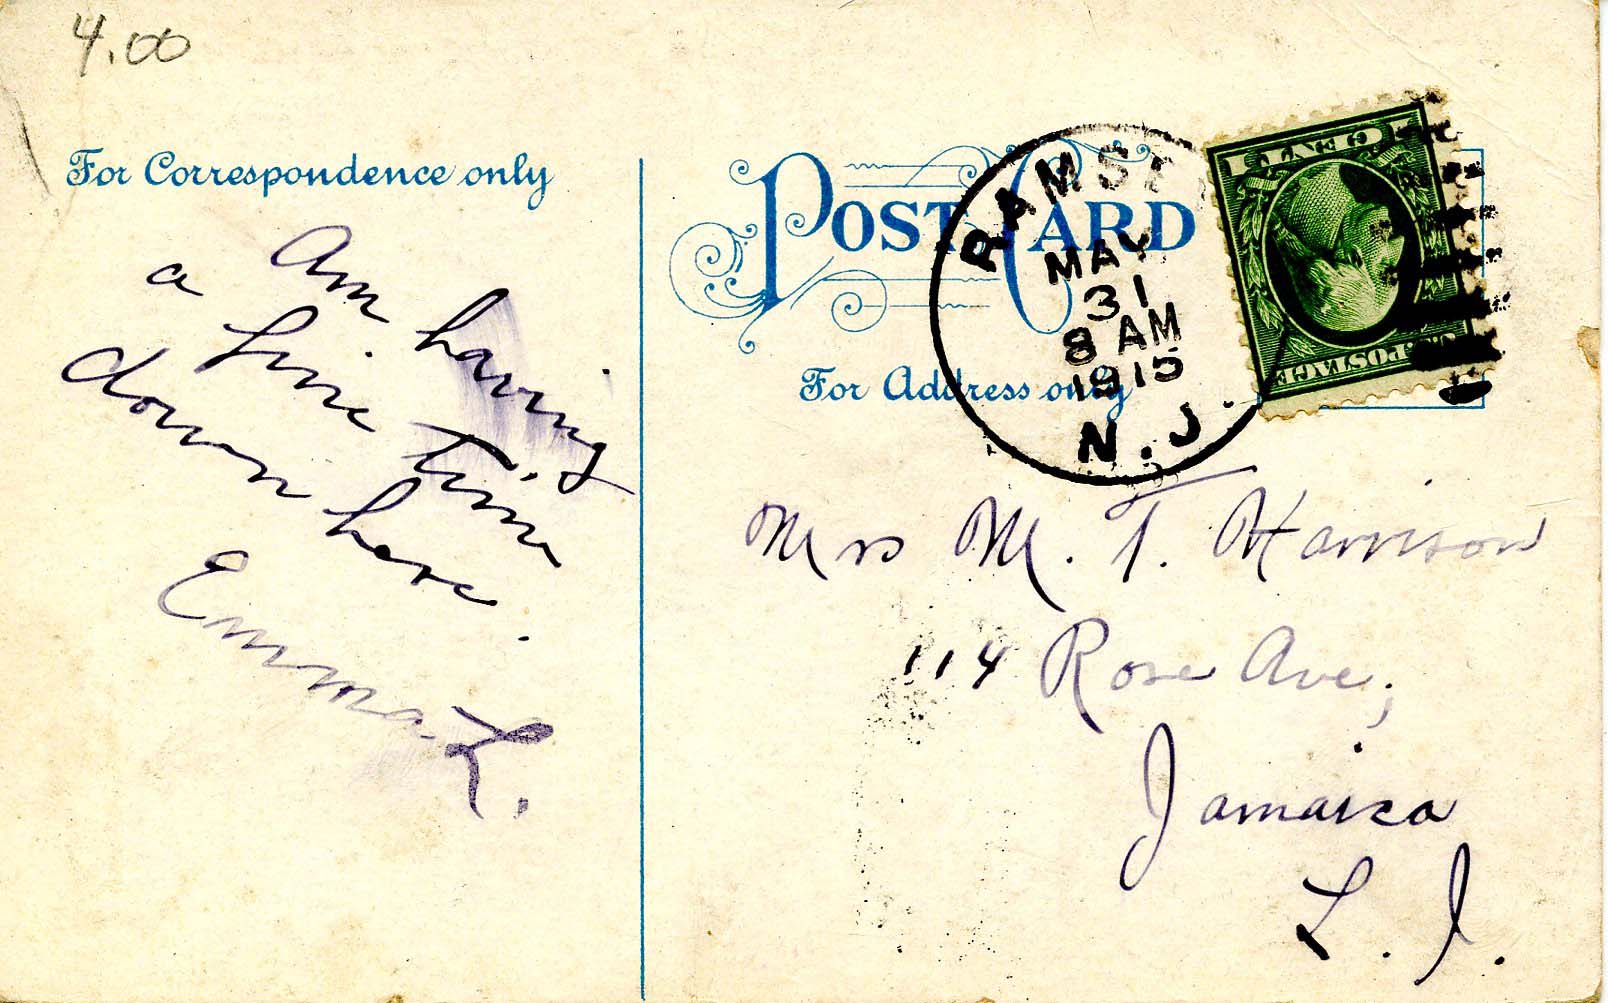 4.00
For Correspondence only
Am having
a fine time
down here.
Emma L.
POST CARD
For Address only
RAMSE
MAY
31
8 AM
1915
N.J.
1 CENT 1
U.S. POSTAGE
Mrs M. T. Harrison
114 Rose Ave,
Jamaica
L. I.